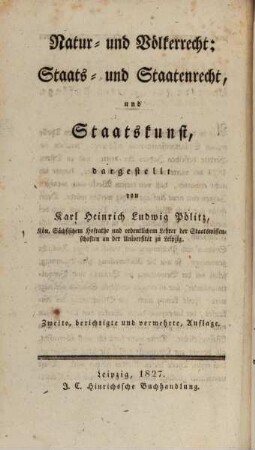 Natur- und Völkerrecht;
Staats- und Staatenrecht,
und
Staatskunst,
dargestellt
von
Karl Heinrich Ludwig Pölitz,
Kön. Sächsischem Hofrathe und ordentlichem Lehrer der Staatswissen-
schaften an der Universität zu Leipzig.
Zweite, berichtigte und vermehrte, Auflage.
Leipzig, 1827.
J. C. Hinrichssche Buchhandlung.